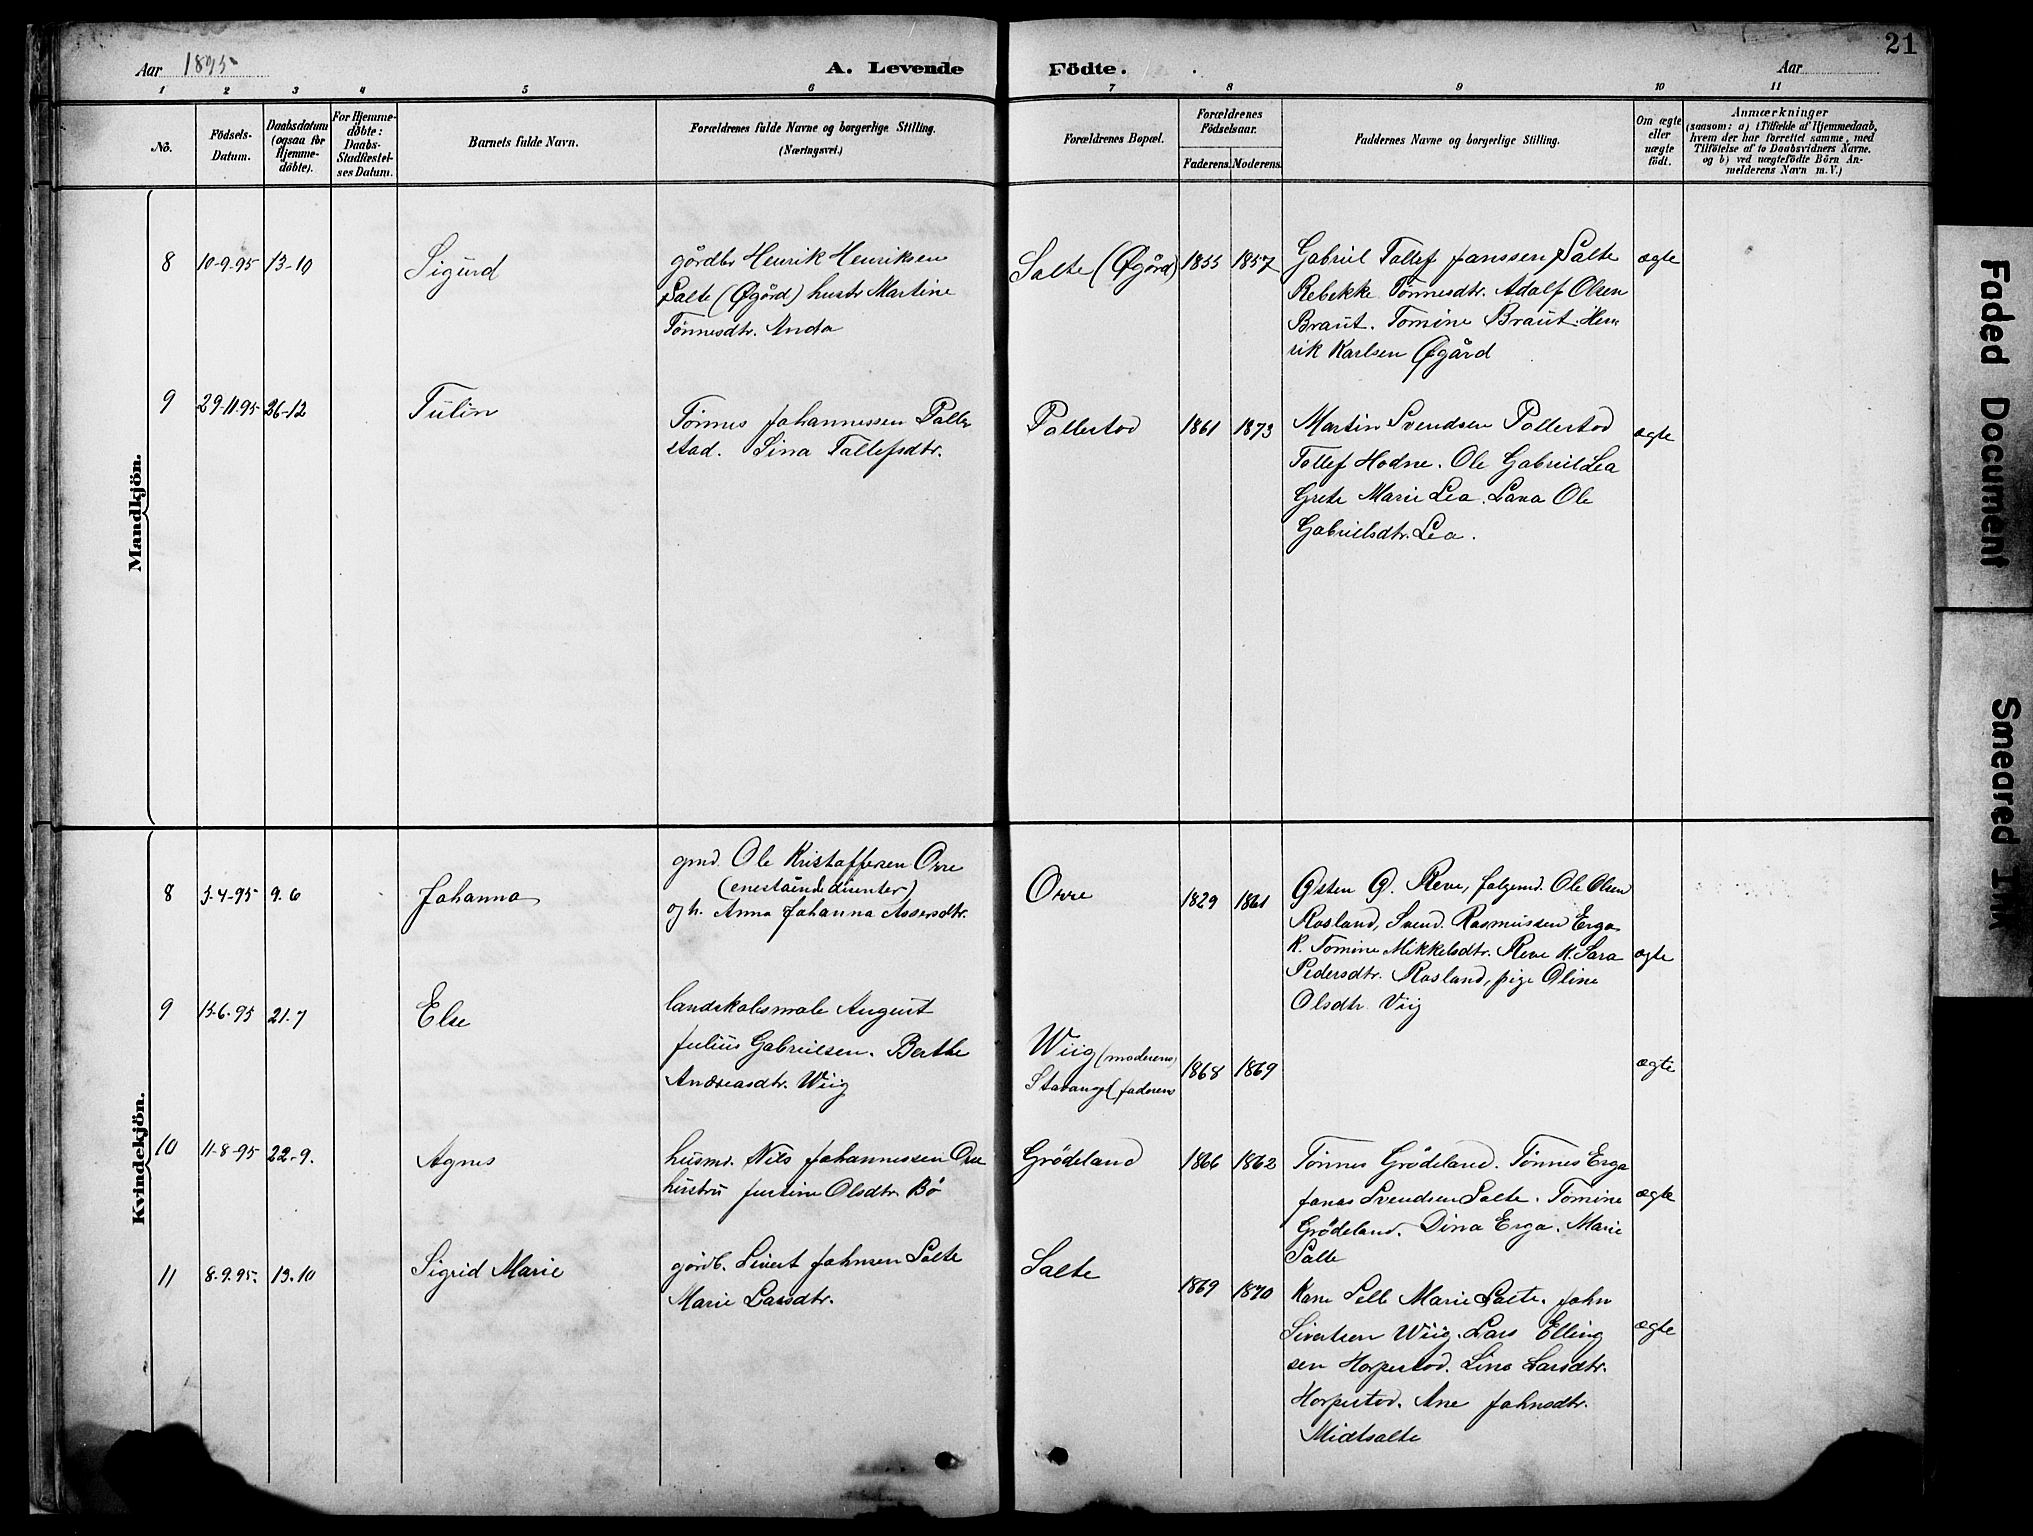 21
Aar 1895
A. Levende Födte.
Aar
1 2 3 4 5 6 7 8 9 10 11
No.
Födsels-Datum.
Daabsdatum (ogsaa for Hjemme-döbte).
For Hjemme-döbte: Daabs-Stadfæstel-ses Datum.
Barnets fulde Navn.
Forældrenes fulde Navne og borgerlige Stilling.
(Næringsvei.)
Forældrenes Bopæl.
Forældrenes Födselsaar.
Faderens. Moderens.
Faddernes Navne og borgerlige Stilling.
Om ægte eller uægte födt.
Anmærkninger
(saasom: a) i Tilfælde af Hjemmedaab,
hvem der har forrettet samme, med
Tilföielse af to Daabsvidners Navne.
og b) ved uægtefödte Börn An-
melderens Navn m. V.)
Mandkjön.
8 10-9-95 13-10 Sigurd
gårdbr Henrik Henriksen
Salte (Øgård) hustr Martine
Tønnesdtr. Anda
Salte (Øgård) 1855 1857
Gabriel Tollef Janssen Salte
Rebekke Tønnesdtr. Adolf Olsen
Braut. Tomine Braut. Hen
rik Karlsen Øgård
ægte
9 29-11-95 26-12 Tulin
Tønnes Johannessen Palle
stad. Sina Tallefsdtr.
Pollestad 1861 1873
Martin Svendsen Pollestad
Tollef Hodne. Ole Gabriel Lea
Grete Marie Lea. Lava Ole
Gabrielsdtr. Lea.
ægte
Kvindekjön.
8 3-4-95 9.6 Johanna
gmd. Ole Kristoffersen Orre
(enestående disenter)
og h. Anna Johanna Assersdtr.
Orre 1829 1861
Østen G. Reve, folgemd. Ole Olsen
Rosland, Svend. Rasmussen Erga
K. Tomine Mikkelsdtr. Reve K. Sara
Pedersdtr. Rosland, pige Oline
Olsdtr Viig
ægte
9 15-6-95 21-7 Else
landskabsmale August
Julius Gabrielsen. Berthe
Andreasdtr. Wiig
Wiig (moderens)
Stavanger (faderen
1868 1869
ægte
10 11-8-95 22-9. Agnes
husmd. Nils Johannessen Orre
hustru Justine Olsdtr Bø
Grødeland 1866 1862
Tønnes Grødeland. Tønnes Erga
Jonas Svendsen Salte. Tomine
Grødeland. Dina Erga. Marie
Salte
ægte
11 8-9-95. 13-10 Sigrid Marie
gårdb. Sivert Johnsen Salte
Marie Larsdtr.
Salte 1869 1870
Kone Selle Marie Salte. John
Sivertsen Wiig. Lars Elling
sen Horpestad. Lina Larsdtr.
Horpestad. Ane Johnsdtr.
Midtsalte
ægte
Faded Document
Smeared Ink